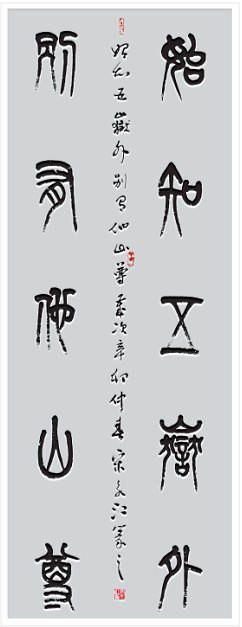 始知五嶽外
別有他山尊
始知五嶽外別有他山尊歲次辛卯仲春宋江篆之